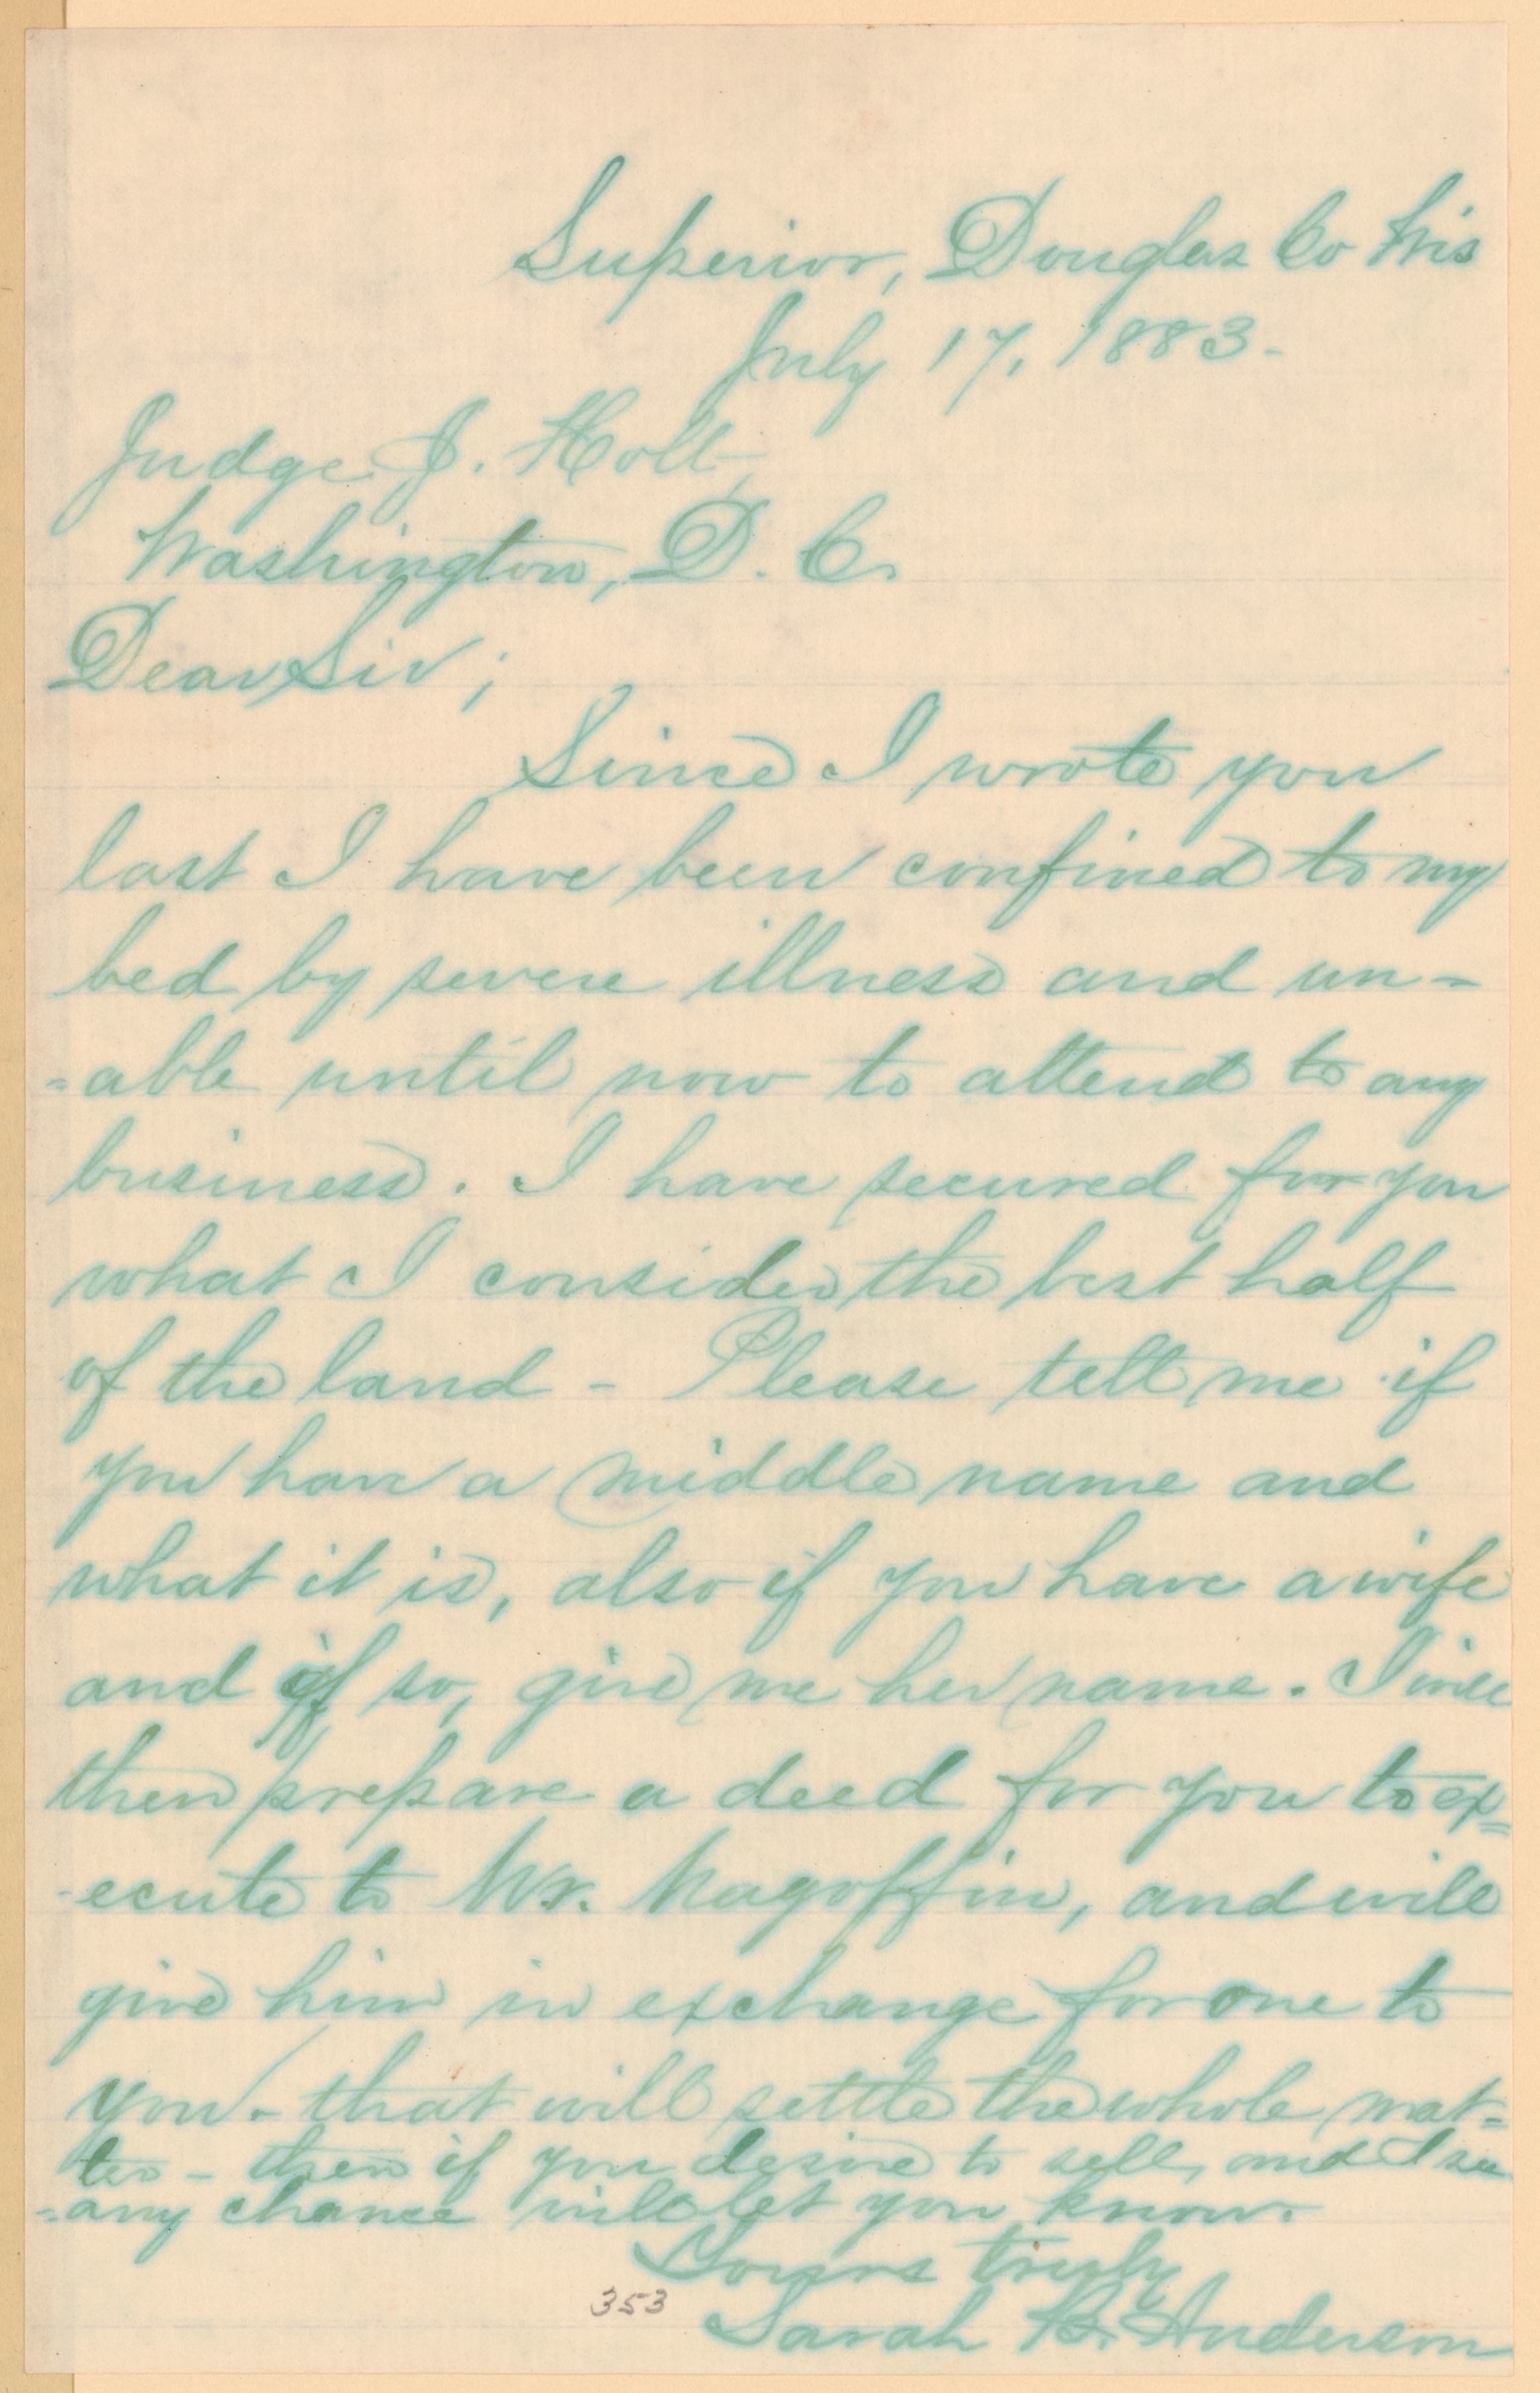 Superior, Douglas Co Wis
July 17, 1883.
Judge J. Holt,
Washington, D. C.
Dear Sir;
Since I wrote you
last I have been confined to my
bed by severe illness and un=
=able until now to attend to any
business. I have secured for you
what I consider the best half
of the land - Please tell me if
you have a middle name and
what it is, also if you have a wife
and if so, give me her name. I will
then prepare a deed for you to ex=
-ecute to Mr. Magoffin, and will
give him in exchange for one to
you - that will settle the whole mat=
ter - then if you desire to sell, and I see
=any chance will let you know.
Yours truly
353
Sarah B. Anderson